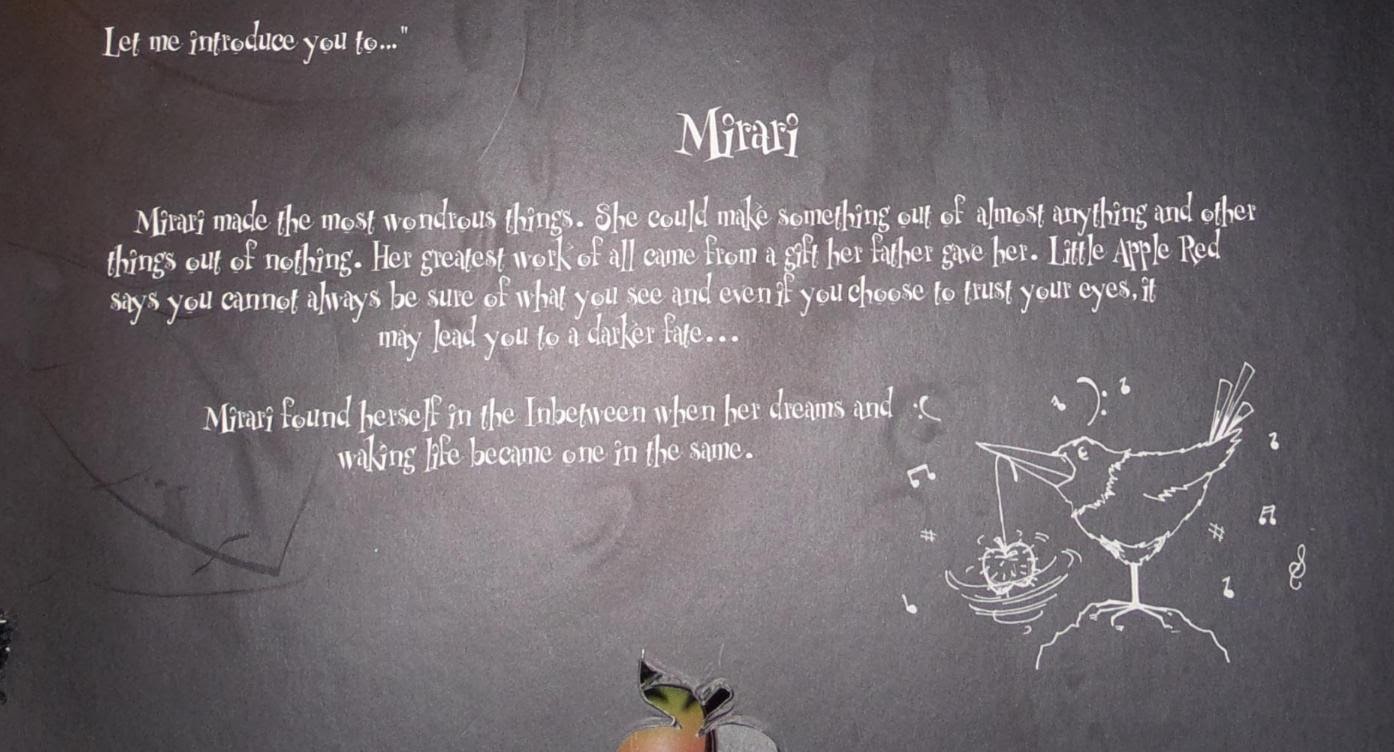 Let me introduce you to..."
Mirari
Mirari made the most wondrous things. She could make something out of almost anything and other
things out of nothing. Her greatest work of all came from a gift her father gave her. Little Apple Red
says you cannot always be sure of what you see and even if you choose to trust your eyes, it
may lead you to a darker fate...
Mirari found herself in the Inbetween when her dreams and
waking life became one in the same.